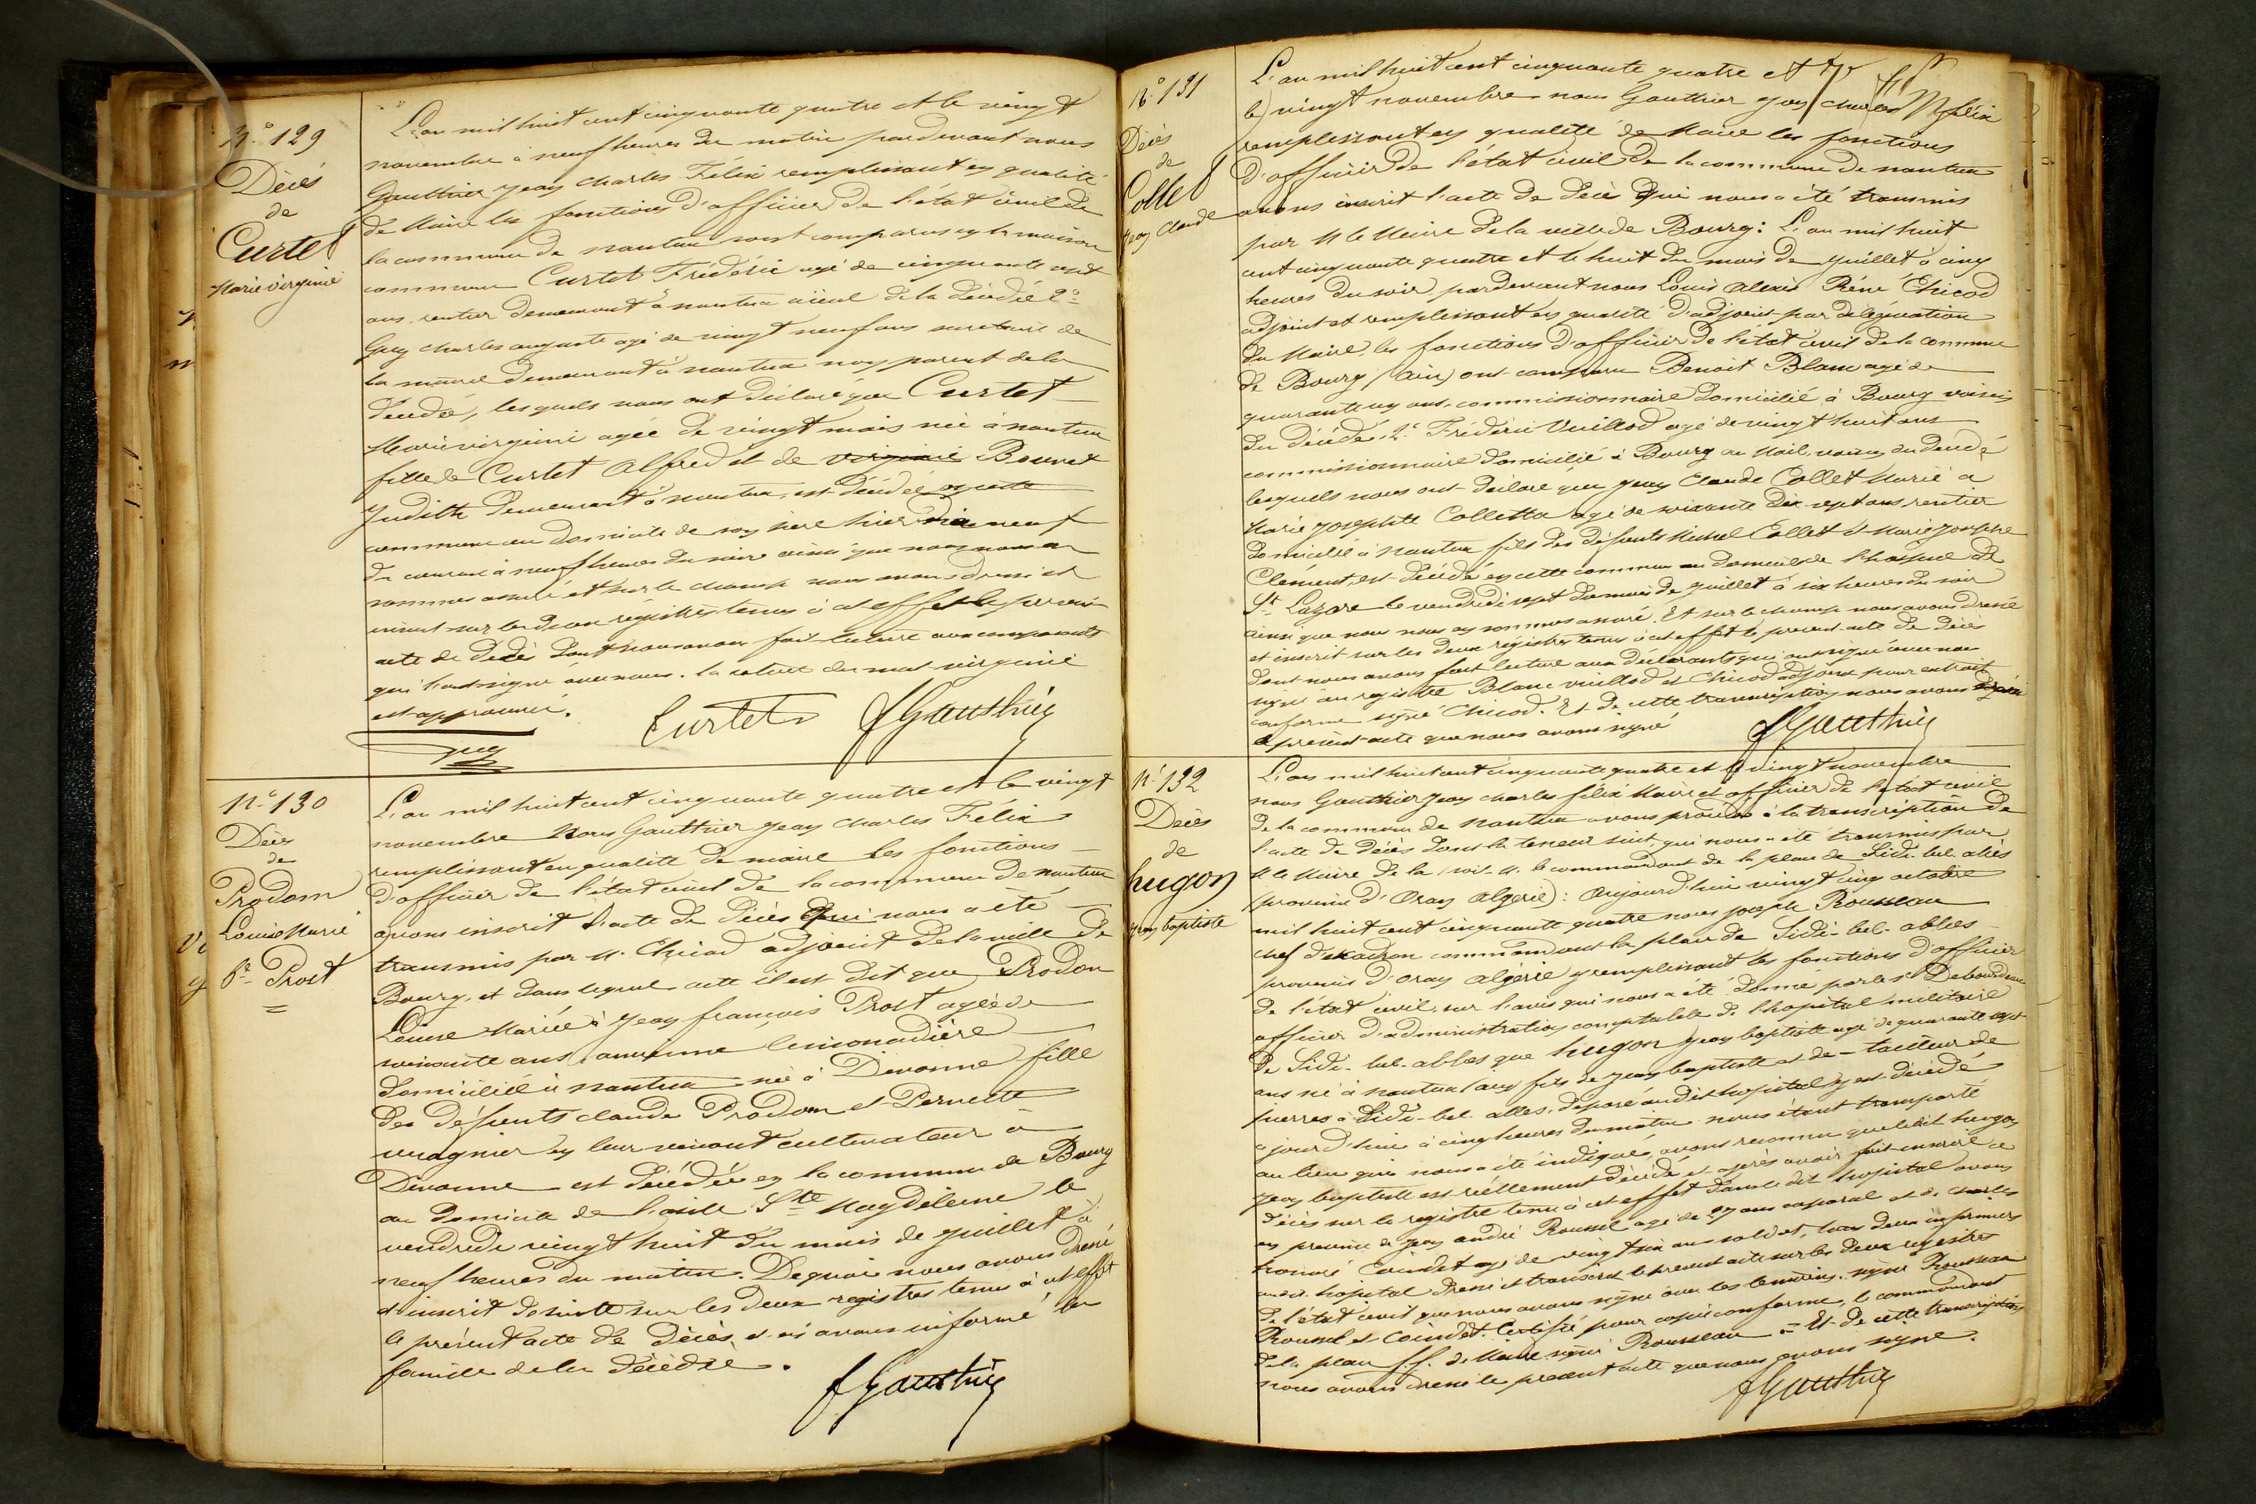 N.° 129
Décès
de
Curtet
Marie virginie
L'an mil huit cent cinquante quatre et le vingt
novembre à neuf heures du matin pardevant nous
Gautthier Jean Charles Félix remplissant en qualité
de Maire les fonctions d'officier de l'état civil de
la commune de nantua sont comparus en la maison
commune Curtet Frédéric agé de cinquante sept
ans rentier demeurant à nantua aïeul de la décédée 2°
Guy charles auguste agé de vingt neuf ans secretaire de
la mairie demeurant à nantua non parent de la
décédée, lesquels nous ont déclaré que Curtet
Marie virginie agee de vingt mois née à nantua
fille de Curtet Alfred et de virginie Bouvet
Judith demeurant à nantua, est décédée en cette
commune au domicile de son père hier dix neuf
du courant à neuf heures du soir ainsi que nous nous en
sommes assuré et sur le champ nous avons dressé et
inscrit sur les deux régistres tenus à cet effet le présent
acte de décès dont nous avons fait lecture aux comparants
qui l'ont signé avec nous. la rature du mot virginie
est approuvée.
Curtet fGautthier
Guy
N.° 130
Décès
de
Prodom
Louise Marie
f.e Prost
L'an mil huit cent cinquante quatre et le vingt
novembre Nous Gautthier Jean Charles Félix
remplissant en qualité de maire les fonctions
d'officier de l'état civil de la commune de nantua
avons inscrit l'acte de décès qui nous a été
transmis par M. Chicod adjoint de la ville de
Bourg, et dans lequel acte il est dit que Prodon
Louise Mariée à Jean françois Prost agée de
soixante ans, ancienne limonadière
domiciliée à nantua née à Divonne fille
des défunts claude Prodom et Pernette
vuagnier en leur vivant cultivateur à
Divonne est décédée en la commune de Bourg
au domicile de l'asile Ste Magdeleine le
vendredi vingt huit du mois de juillet à
neuf heures du matin. De quoi nous avons dressé
et inscrit de suite sur les deux registres tenus à cet effet
le présent acte de Décès, et en avons informé la
famille de la décédée.
fGautthier
N.° 131
Décès
de
Collet
Jean Claude
L'an mil huit cent cinquante quatre et
le vingt novembre nous Gautthier Jean charles félix
remplissant en qualité de Maire les fonctions
d'officier de l'état civil de la commune de nantua
avons inscrit l'acte de décès qui nous a été transmis
par M le Maire de la ville de Bourg: L'an mil huit
cent cinquante quatre et le huit du mois de juillet à cinq
heures du soir pardevant nous Louis Alexis Réné Chicod
adjoint et remplissant en qualité d'adjoint par délégation
du Maire, les fonctions d'officier de l'état civil de la commune
de Bourg (Ain) ont comparu Benoit Blanc agé de
quarante un ans, commissionnaire domicilié à Bourg voisin
du décédé, 2.° Frédéric Vuillod agé de vingt huit ans
commissionnaire domicilié à Bourg au Mail, voisin du décédé
lesquels nous ont déclaré que Jean Claude Collet Marié à
Marie Josephte Colletta agé de soixante dix sept ans, rentier
domicilié à nantua fils des défunts Michel Collet et Marie Josephe
Clément, est décédé en cette commune au domicile de l'hospice de
St Lazare le vendredi sept du mois de juillet à six heures du soir
ainsi que nous nous en sommes assuré. Et sur le champ nous avons dressé
et inscrit sur les deux régistres tenus à cet effet le présent acte de décès
dont nous avons fait lecture aux déclarants qui ont signé avec nous
signé au registre Blanc vuillod et Chicod adjoint pour extrait
conforme signé Chicod. Et de cette transcription nous avons dressé
le présent acte que nous avons signé
fGautthier
N.° 132
Décès
de
hugon
Jean baptiste
L'an mil huit cent cinquante quatre et le vingt novembre
nous Gautthier Jean charles félix Maire et officier de l'état civil
de la commune de Nantua avons procédé à la transcription de
l'acte de décès dont la teneur suit, qui nous a été transmis par
M le Maire de la M. le commandant de la place de Sidi-bel-abès
(province d'Oran Algerie): Aujourd'hui vingt cinq octobre
mil huit cent cinquante quatre nous joseph Rousseau
chef d'escadron commandant la place de Sidi-bel-abbes
province d'oran algérie y remplissant les fonctions d'officier
de l'état civil, sur l'avis qui nous a été donné par le Sr Debourdeau
officier d'administration comptable de l'hopital militaire
de Sidi-bel-abbes que hugon Jean baptiste agé de quarante sept
ans né à nantua (ain) fils de Jean baptiste et de – tailleur de
pierres à Sidi-bel abbes, déposé audit hopital y est décédé
aujourd'hui à cinq heures du matin nous étant transporté
au lieu qui nous a été indiqué, avons reconnu que ledit hugon
Jean baptiste est réellement décédé et après avoir fait inscrire ce
décès sur le registre tenu à cet effet dans le dit hopital avons
en présence de Jean andré Roussel agé de 27 ans caporal et de charles
honoré Coindet agé de vingt six ans soldat, tous deux infirmiers
audit hopital dressé et transcrit le présent acte sur les deux registres
de l'état civil que nous avons signé avec les témoins. signé Rousseau
Roussel et Coindet. Certifié pour copie conforme, le commandant
de la place f.f. de Maire signé Rousseau = Et de cette transcription
nous avons dressé le présent acte que nous avons signé.
fGautthier